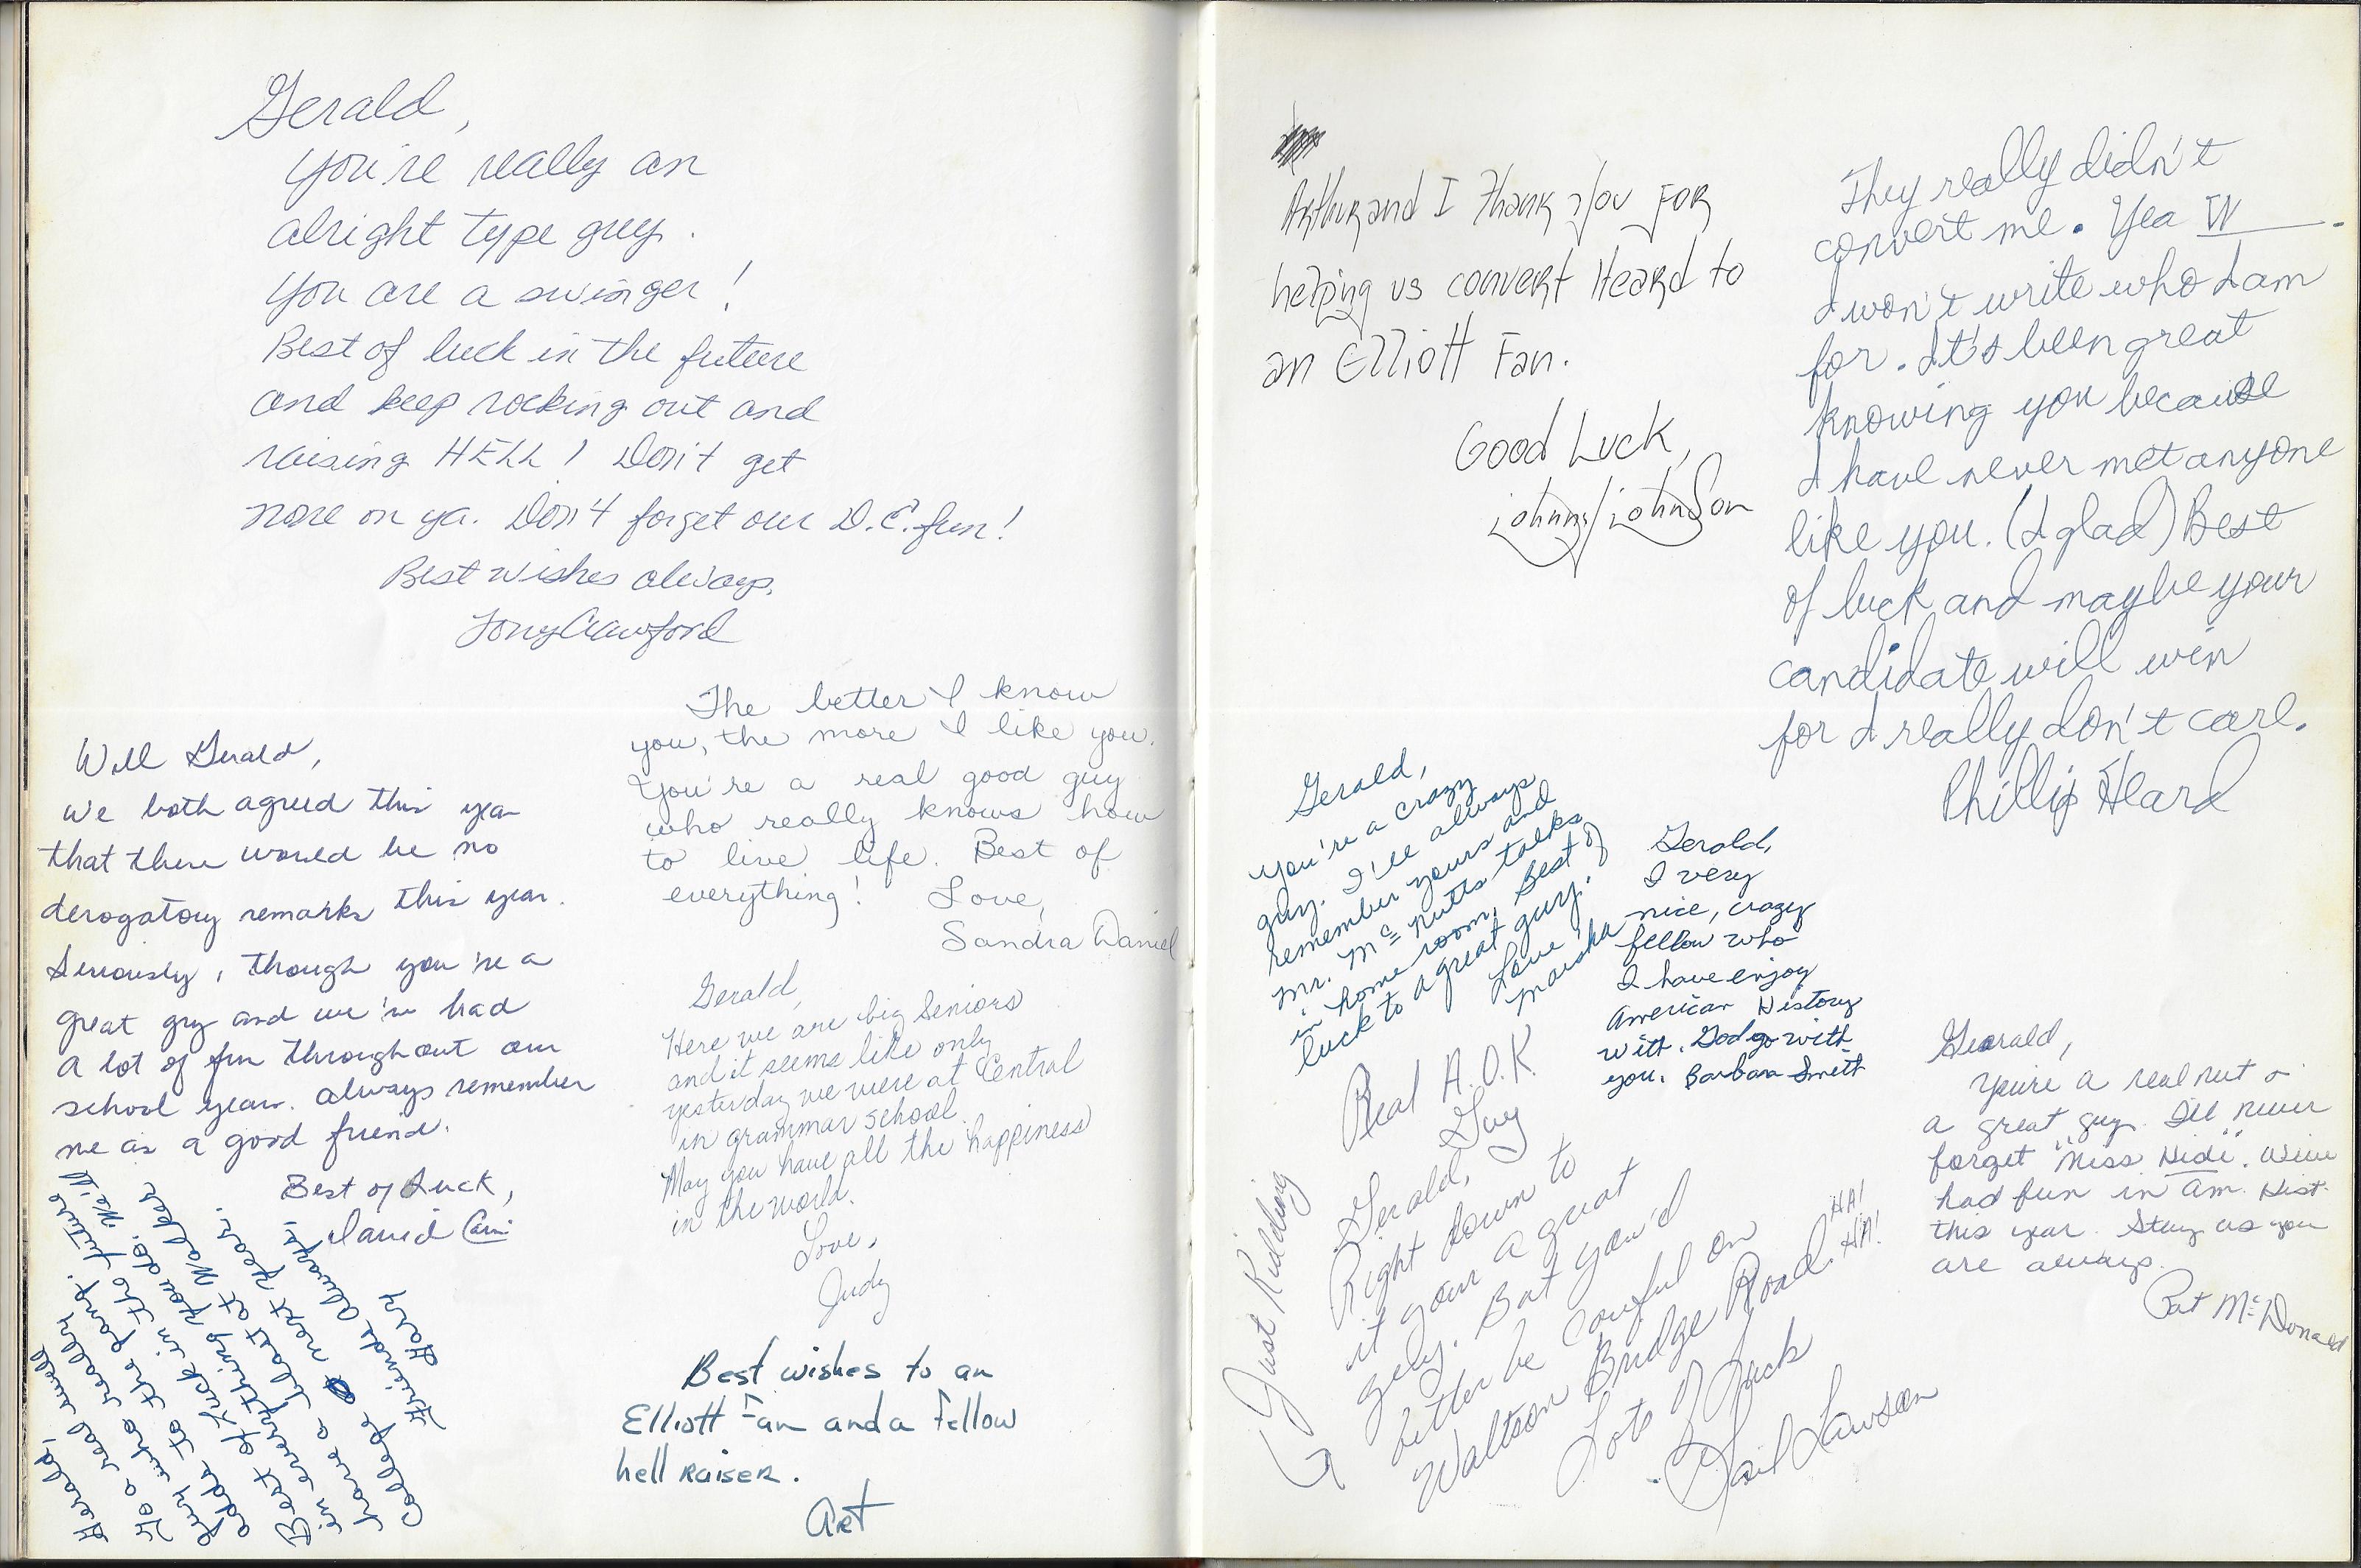 Gerald,
You're really an
alright type guy.
You are a swinger!
Best of luck in the future
and keep rocking out and
raising HELL! Don't get
none on ya. Don't forget our D.C. fun!
Best wishes always,
Tony Crawford
The better I know
you, the more I like you.
You're a real good guy
who really knows how
to live life. Best of
everything! Love,
Sandra Daniel
Well Gerald,
We both agreed this year
that there would be no
derogatory remarks this year.
Seriously, though you're a
great guy and we've had
a lot of fun throughout our
school year. Always remember
me as a good friend.
Best of Luck,
David
Gerald,
Here we are big Seniors
and it seems like only
yesterday we were at Central
in grammar school.
May you have all the happiness
in the world.
Love,
Judy
Gerald,
To a real swell
guy who really
adds to the gang.
Best of Luck in the future
in everything you do. We'll
have a blast at Walker
College next year.
Friends Always,
Gary
Best wishes to an
Elliott Fan and a Fellow
hell raiser.
Art
Arthur and I Thank you For
helping us convert Heard to
an Elliott Fan.
Good Luck,
Johnny Johnson
They really didn't
convert me. Yea W____.
I won't write who I am
for. It's been great
knowing you because
I have never met anyone
like you. (I glad) Best
of luck and maybe your
candidate will win
for I really don't care.
Phillip Heard
Gerald,
You're a crazy
guy. I'll always
remember yours and
Mr. McNutts talks
in home room. Best of
luck to a great guy.
Love 'ka
Marsha
Gerald,
I very
nice, crazy
fellow who
I have enjoy
American History
with. God go with
you. Barbara Smith
Gerald,
You're a real nut &
a great guy. I'll never
forget "Miss Hidi". We've
had fun in Am. Hist.
this year. Stay as you
are always.
Pat McDonald
Real A.O.K.
Guy
Gerald,
Right down to
it your a great
guy. But you'd
better be careful on
Waltson Bridge Road. HA!
HA!
Lots of Luck
Gail Lawson
Just Kidding